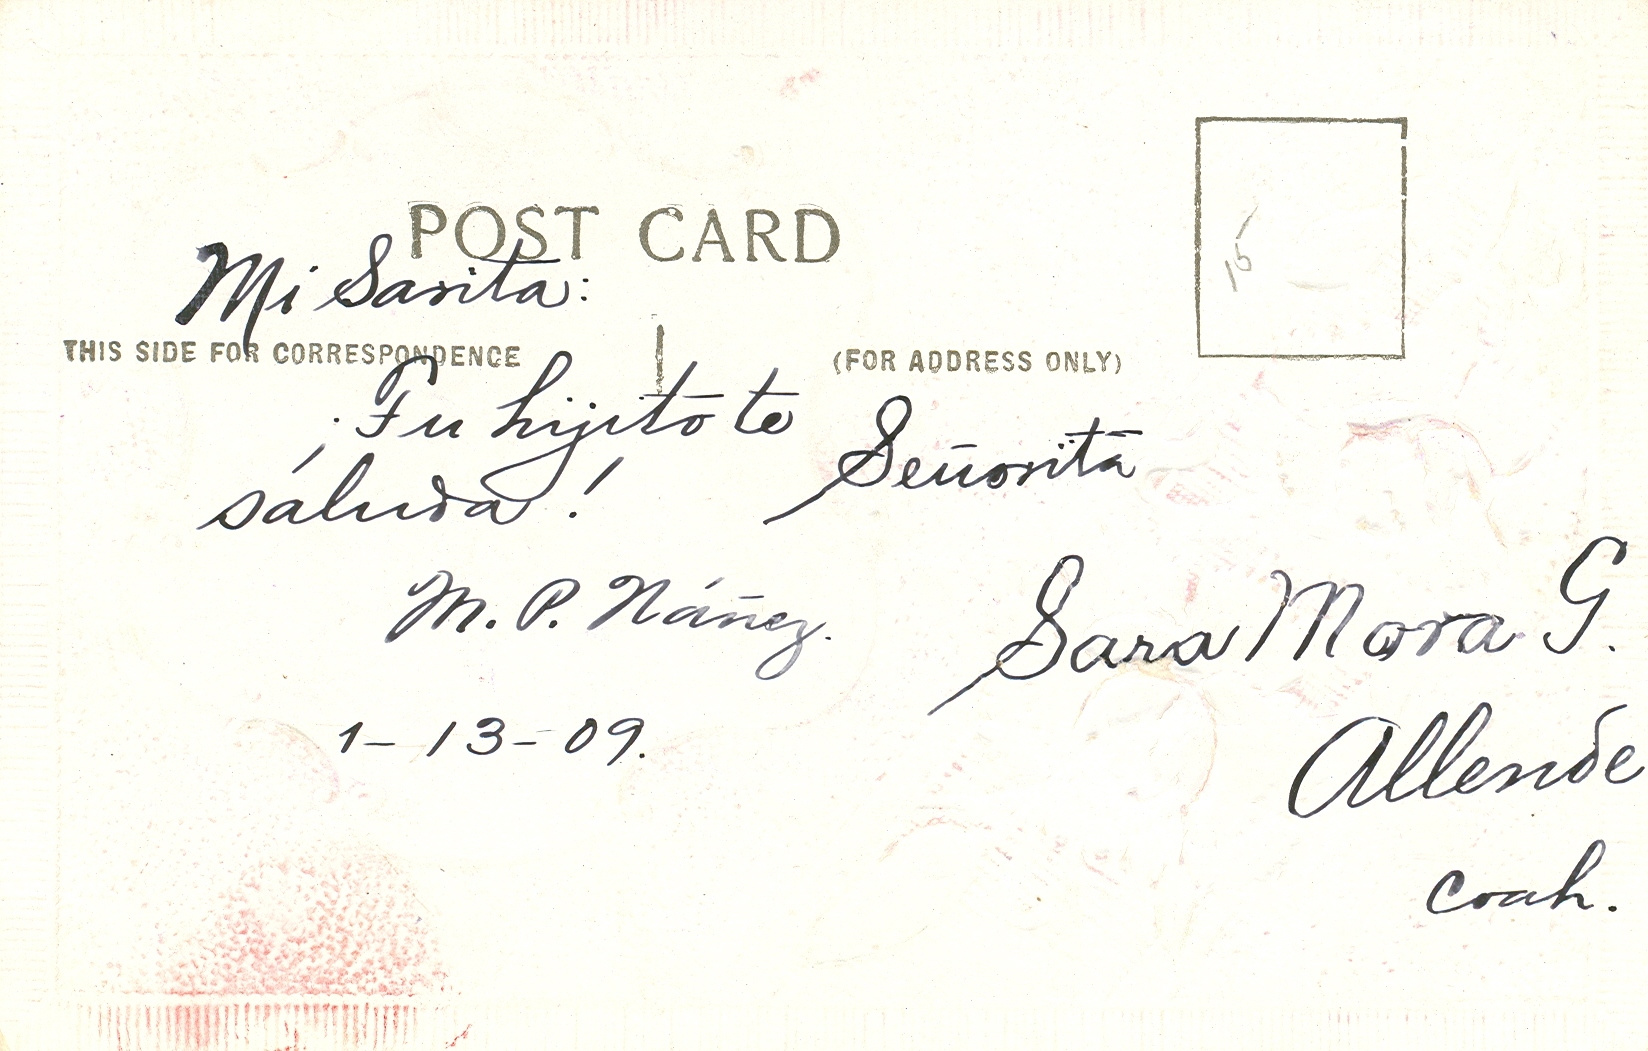 POST CARD
Mi Sarita:
THIS SIDE FOR CORRESPONDENCE
¡Tu hijito te
saluda!
M. P. Náñez.
1-13-09.
(FOR ADDRESS ONLY)
Señorita
Sara Mora G.
Allende
Coah.
15